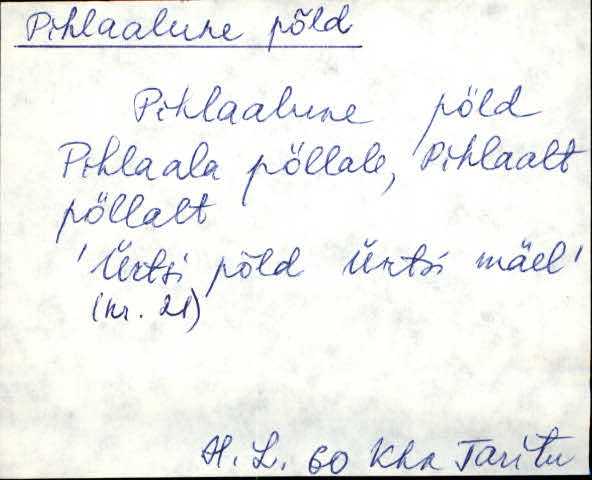 Pihlaalune põld
Pihlaalune põld
Pihlaala põllale, Pihlaalt
põllalt
'Ürtsi põld Ürtsi mäel'
(nr. 21)
H. L. 60 Khk Taritu